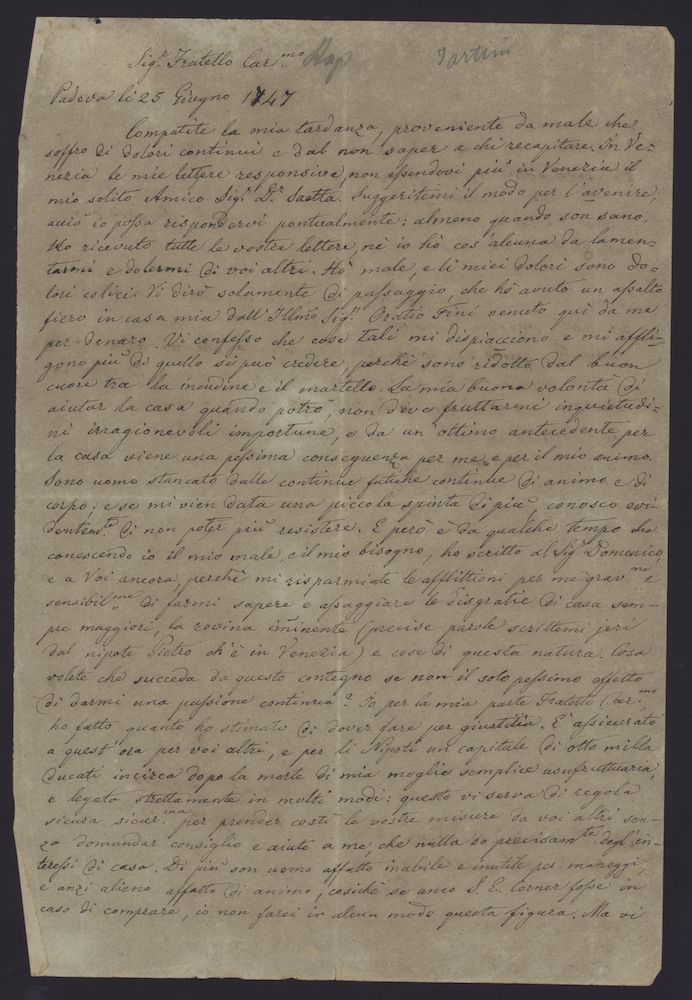 Sig.r Fratello Car.mo Tartini
Padova li 25 Giugno 1747
Compatite la mia tardanza, proveniente da male che
soffro di dolori continui e dal non saper a chi recapitare in Ve=
nezia le mie lettere responsive, non essendovi più in Venezia il
mio solito Amico Sig.r D.r Saetta. Suggeritemi il modo per l'avenire,
acciò io possa rispondervi pontualmente: almeno quando son sano.
Ho ricevuto tutte le vostre lettere, nè io hò cos'alcuna da lamen=
tarmi e dolermi di voi altri. Hò male, e li miei dolori sono do=
lori colici. Vi dirò solamente di passaggio, che hò avuto un assalto
fiero in casa mia dall'Illmo Sig.r Oratio Fini venuto quì da me
per denaro. Vi confesso che cose tali mi dispiacciono e mi affli=
gono più di quello si può credere, perchè sono ridotto dal buon
cuore tra la incudine e il martello. La mia buona volontà di
aiutar la casa quando potrò, non deve fruttarmi inquietudi=
ni irragionevoli importune, e da un ottimo antecedente per
la casa viene una pessima conseguenza per me e per il mio animo.
Sono uomo stancato dalle continue fatiche continue di animo e di
corpo; e se mi vien data una piccola spinta di più, conosco evi=
dentem.te di non poter più resistere. E però è da qualche tempo che
conoscendo io il mio male, e il mio bisogno, ho scritto al Sig.r Domenico,
e a Voi ancora, perchè mi risparmiate le afflittioni per me grav.me e
sensibil.me di farmi sapere e assaggiare le disgratie di casa sem=
pre maggiori la rovina iminente (precise parole scrittemi jeri
dal nipote Pietro ch'è in Venezia) e cose di questa natura. Cosa
volete che succeda da questo contegno se non il solo pessimo effetto
di darmi una passione continua? Io per la mia parte Fratello Car.mo
ho fatto quanto ho stimato di dover fare per giustitia. E' assicurato
a quest'ora per voi altri, e per li Nipoti un capitale di otto milla
ducati incirca dopo la morte di mia moglie semplice usufruttuaria,
e legato strettamente in molti modi: questo vi serva di regola
sicura sicur.ma per prender costì le vostre misure da voi altri sen=
za domandar consiglio e aiuto a me che nulla so precisam.te degl'in=
teressi di casa. Di più son uomo affatto inabile e inutile per maneggi,
e anzi alieno affatto di animo, cosichè se anco S. E. Corner fosse in
caso di comprare, io non farei in alcun modo questa figura. Ma vi